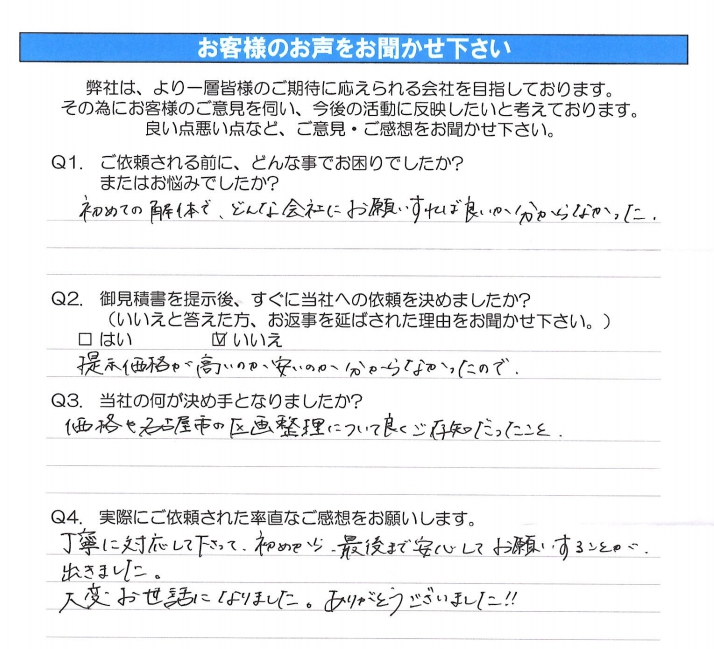 お客様のお声をお聞かせ下さい
弊社は、より一層皆様のご期待に応えられる会社を目指しております。
その為にお客様のご意見を伺い、今後の活動に反映したいと考えております。
良い点悪い点など、ご意見・ご感想をお聞かせ下さい。
Q1. ご依頼される前に、どんな事でお困りでしたか?
またはお悩みでしたか?
初めての解体で、どんな会社にお願いすれば良いか分からなかった.
Q2. 御見積書を提示後、すぐに当社への依頼を決めましたか?
(いいえと答えた方、お返事を延ばされた理由をお聞かせ下さい。)
□ はい ☑ いいえ
提示価格が高いのか、安いのか、分からなかったので.
Q3. 当社の何が決め手となりましたか?
価格や名古屋市の区画整理について良くご存知だったこと.
Q4. 実際にご依頼された率直なご感想をお願いします。
丁寧に対応して下さって、初めから、最後まで安心してお願いすることが、
出きました。
大変お世話になりました。ありがとうございました!!